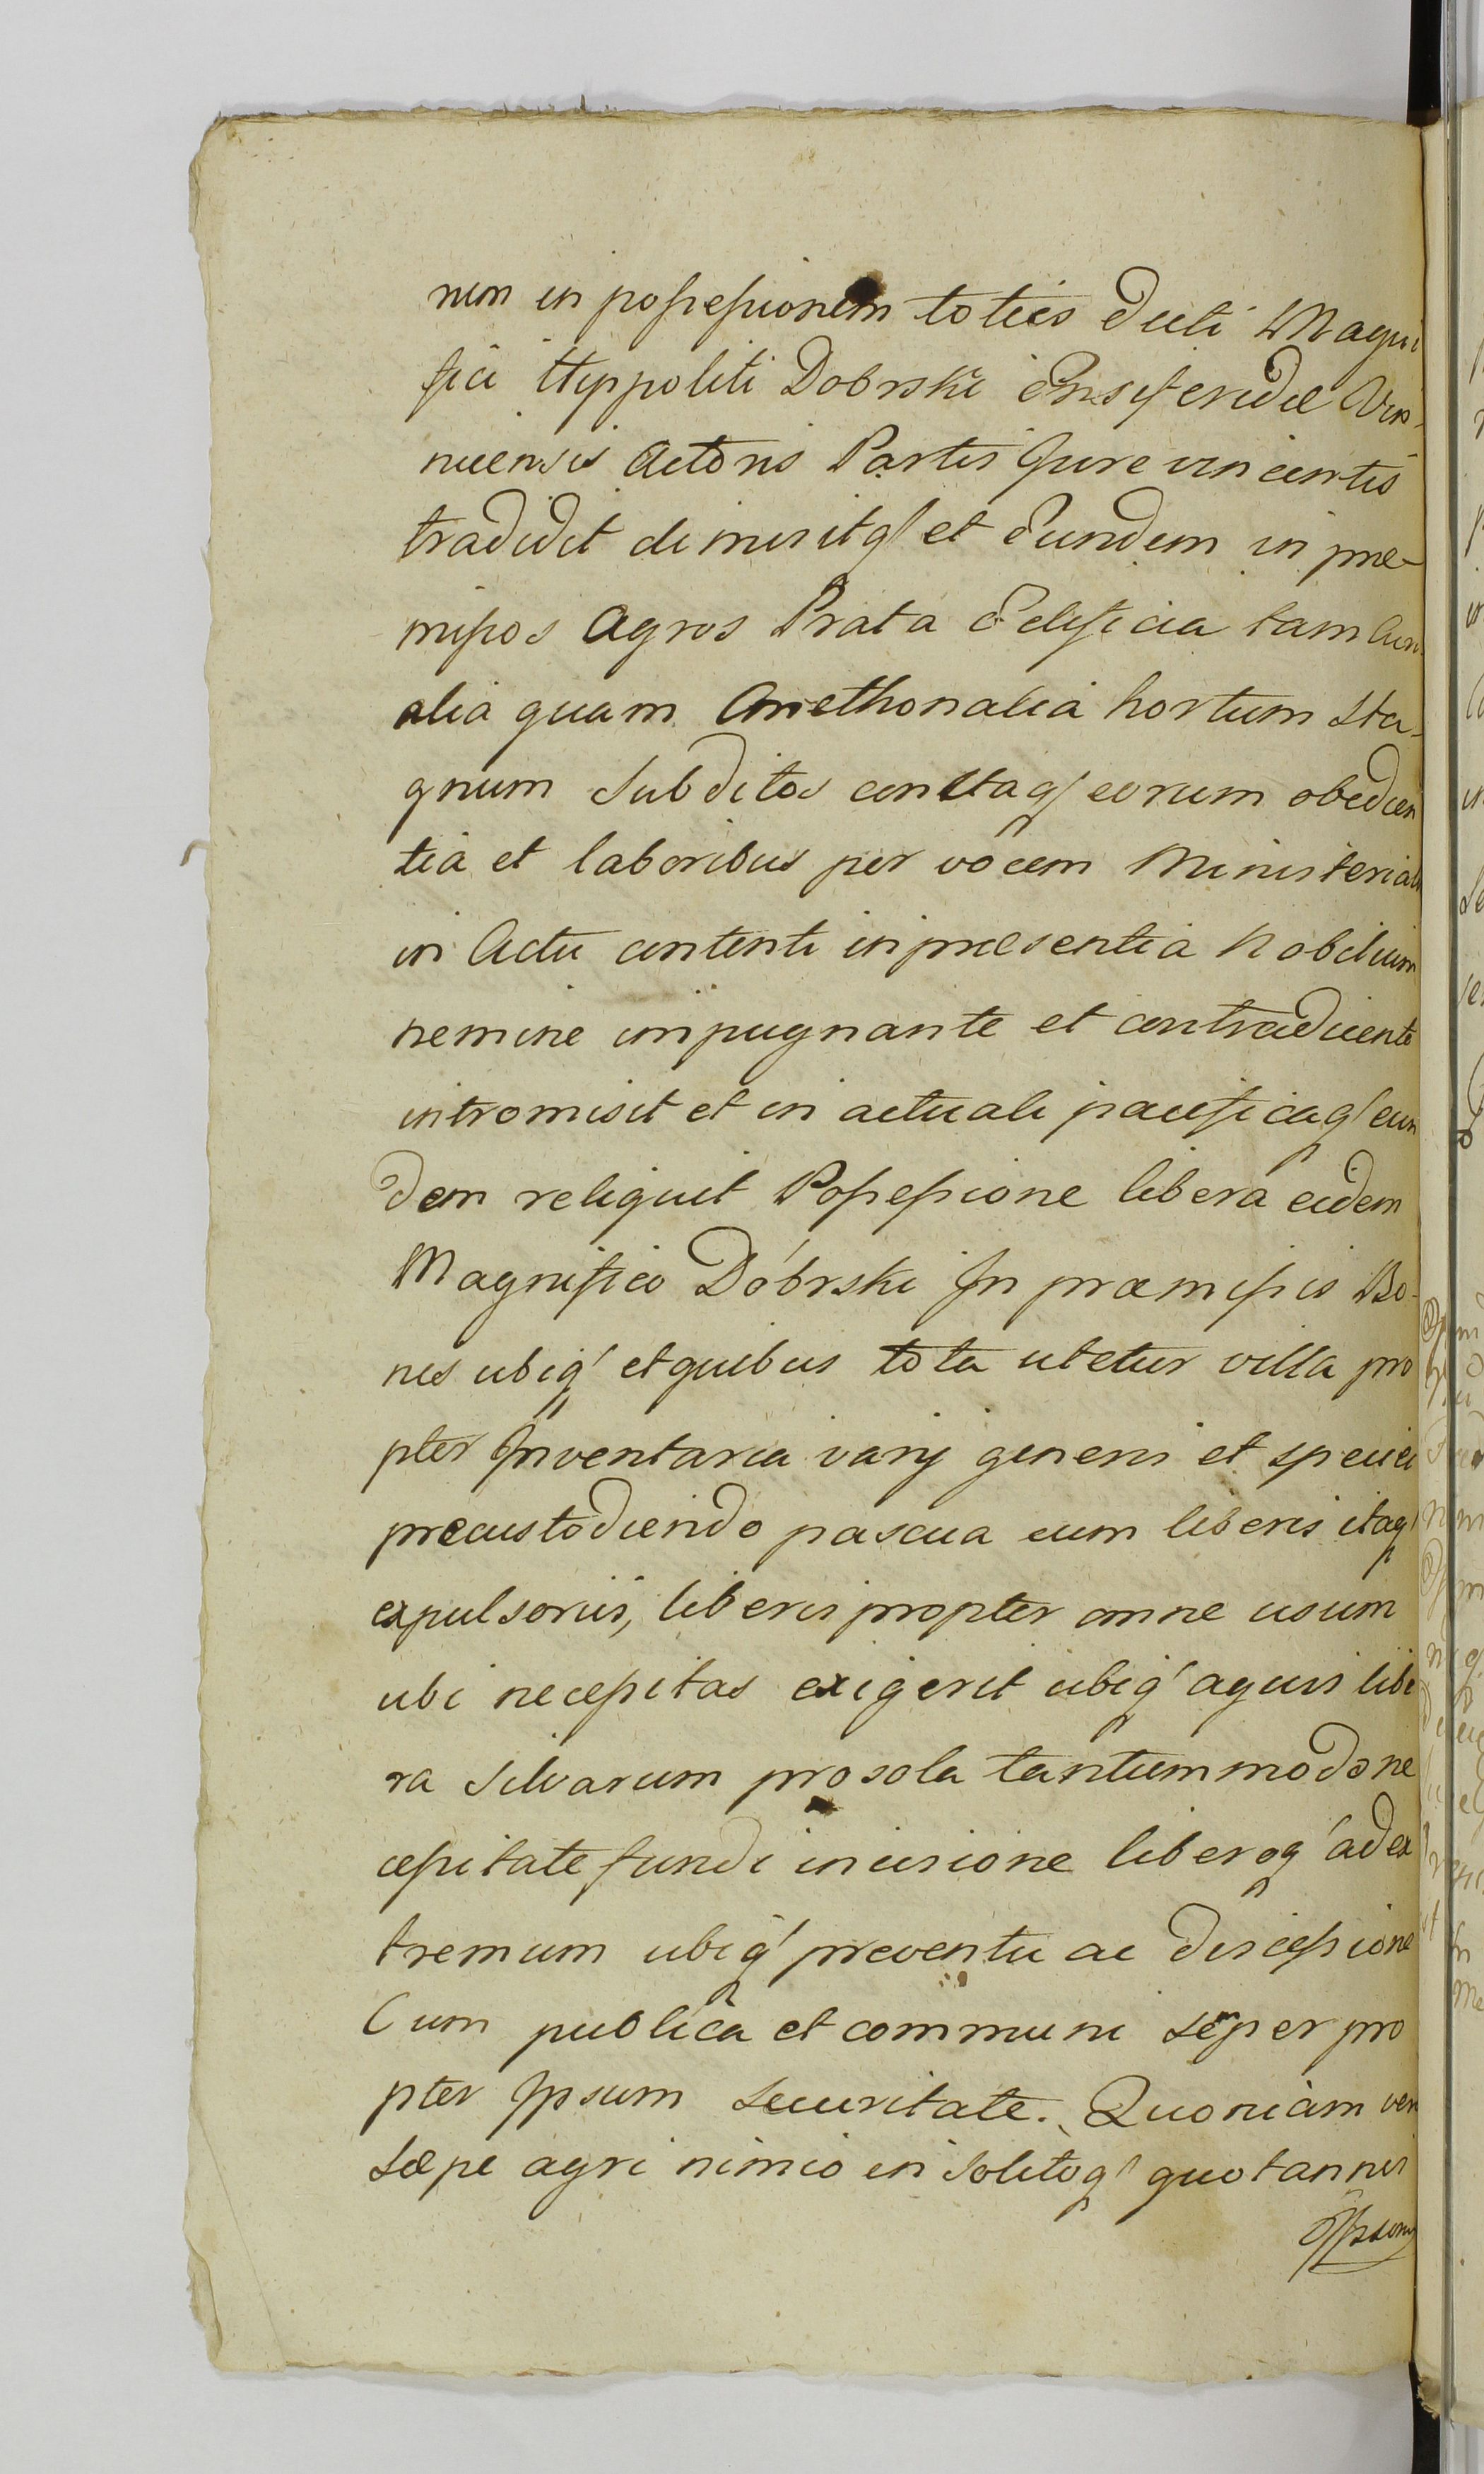 nem in possessionem toties dicti Magni
fici Hyppoliti Dobrski Ensiferidae Vin-
nicensis Actoris Partis Jure vincentis
tradidit dimisitq et Eundem in prae-
missos Agros Prata Edificia tam
alia quam Amethonalia hortum Sta-
gnum Subditos cunctaq eorum obedien
tia et laboribus per vocem Ministerial
in Actu contenti in praesentia Nobilium
nemine impugnante et contradicente
intromisit et in actuali pacificaq eun
dem reliquit Possessione libera eidem
Magnifico Dobrski In praemissis Bo-
nis ubiq et quibus tota utetur villa pro
pter Inventaria varij generis et speciei
praecustodiendo pascua cum liberis itaq
expulsoriis, liberis propter omne usum
ubi necessitas exigerit ubiq aquis libe
ra Silvarum pro sola tantummodo ne
cessitate fundi incisione liberoq ad ex
tremum ubiq preventu ac discessione
Cum publica et communi semper pro
pter Ipsum Securitate. Quoniam ver
Saepe agri nimio in Solitoq quotannis